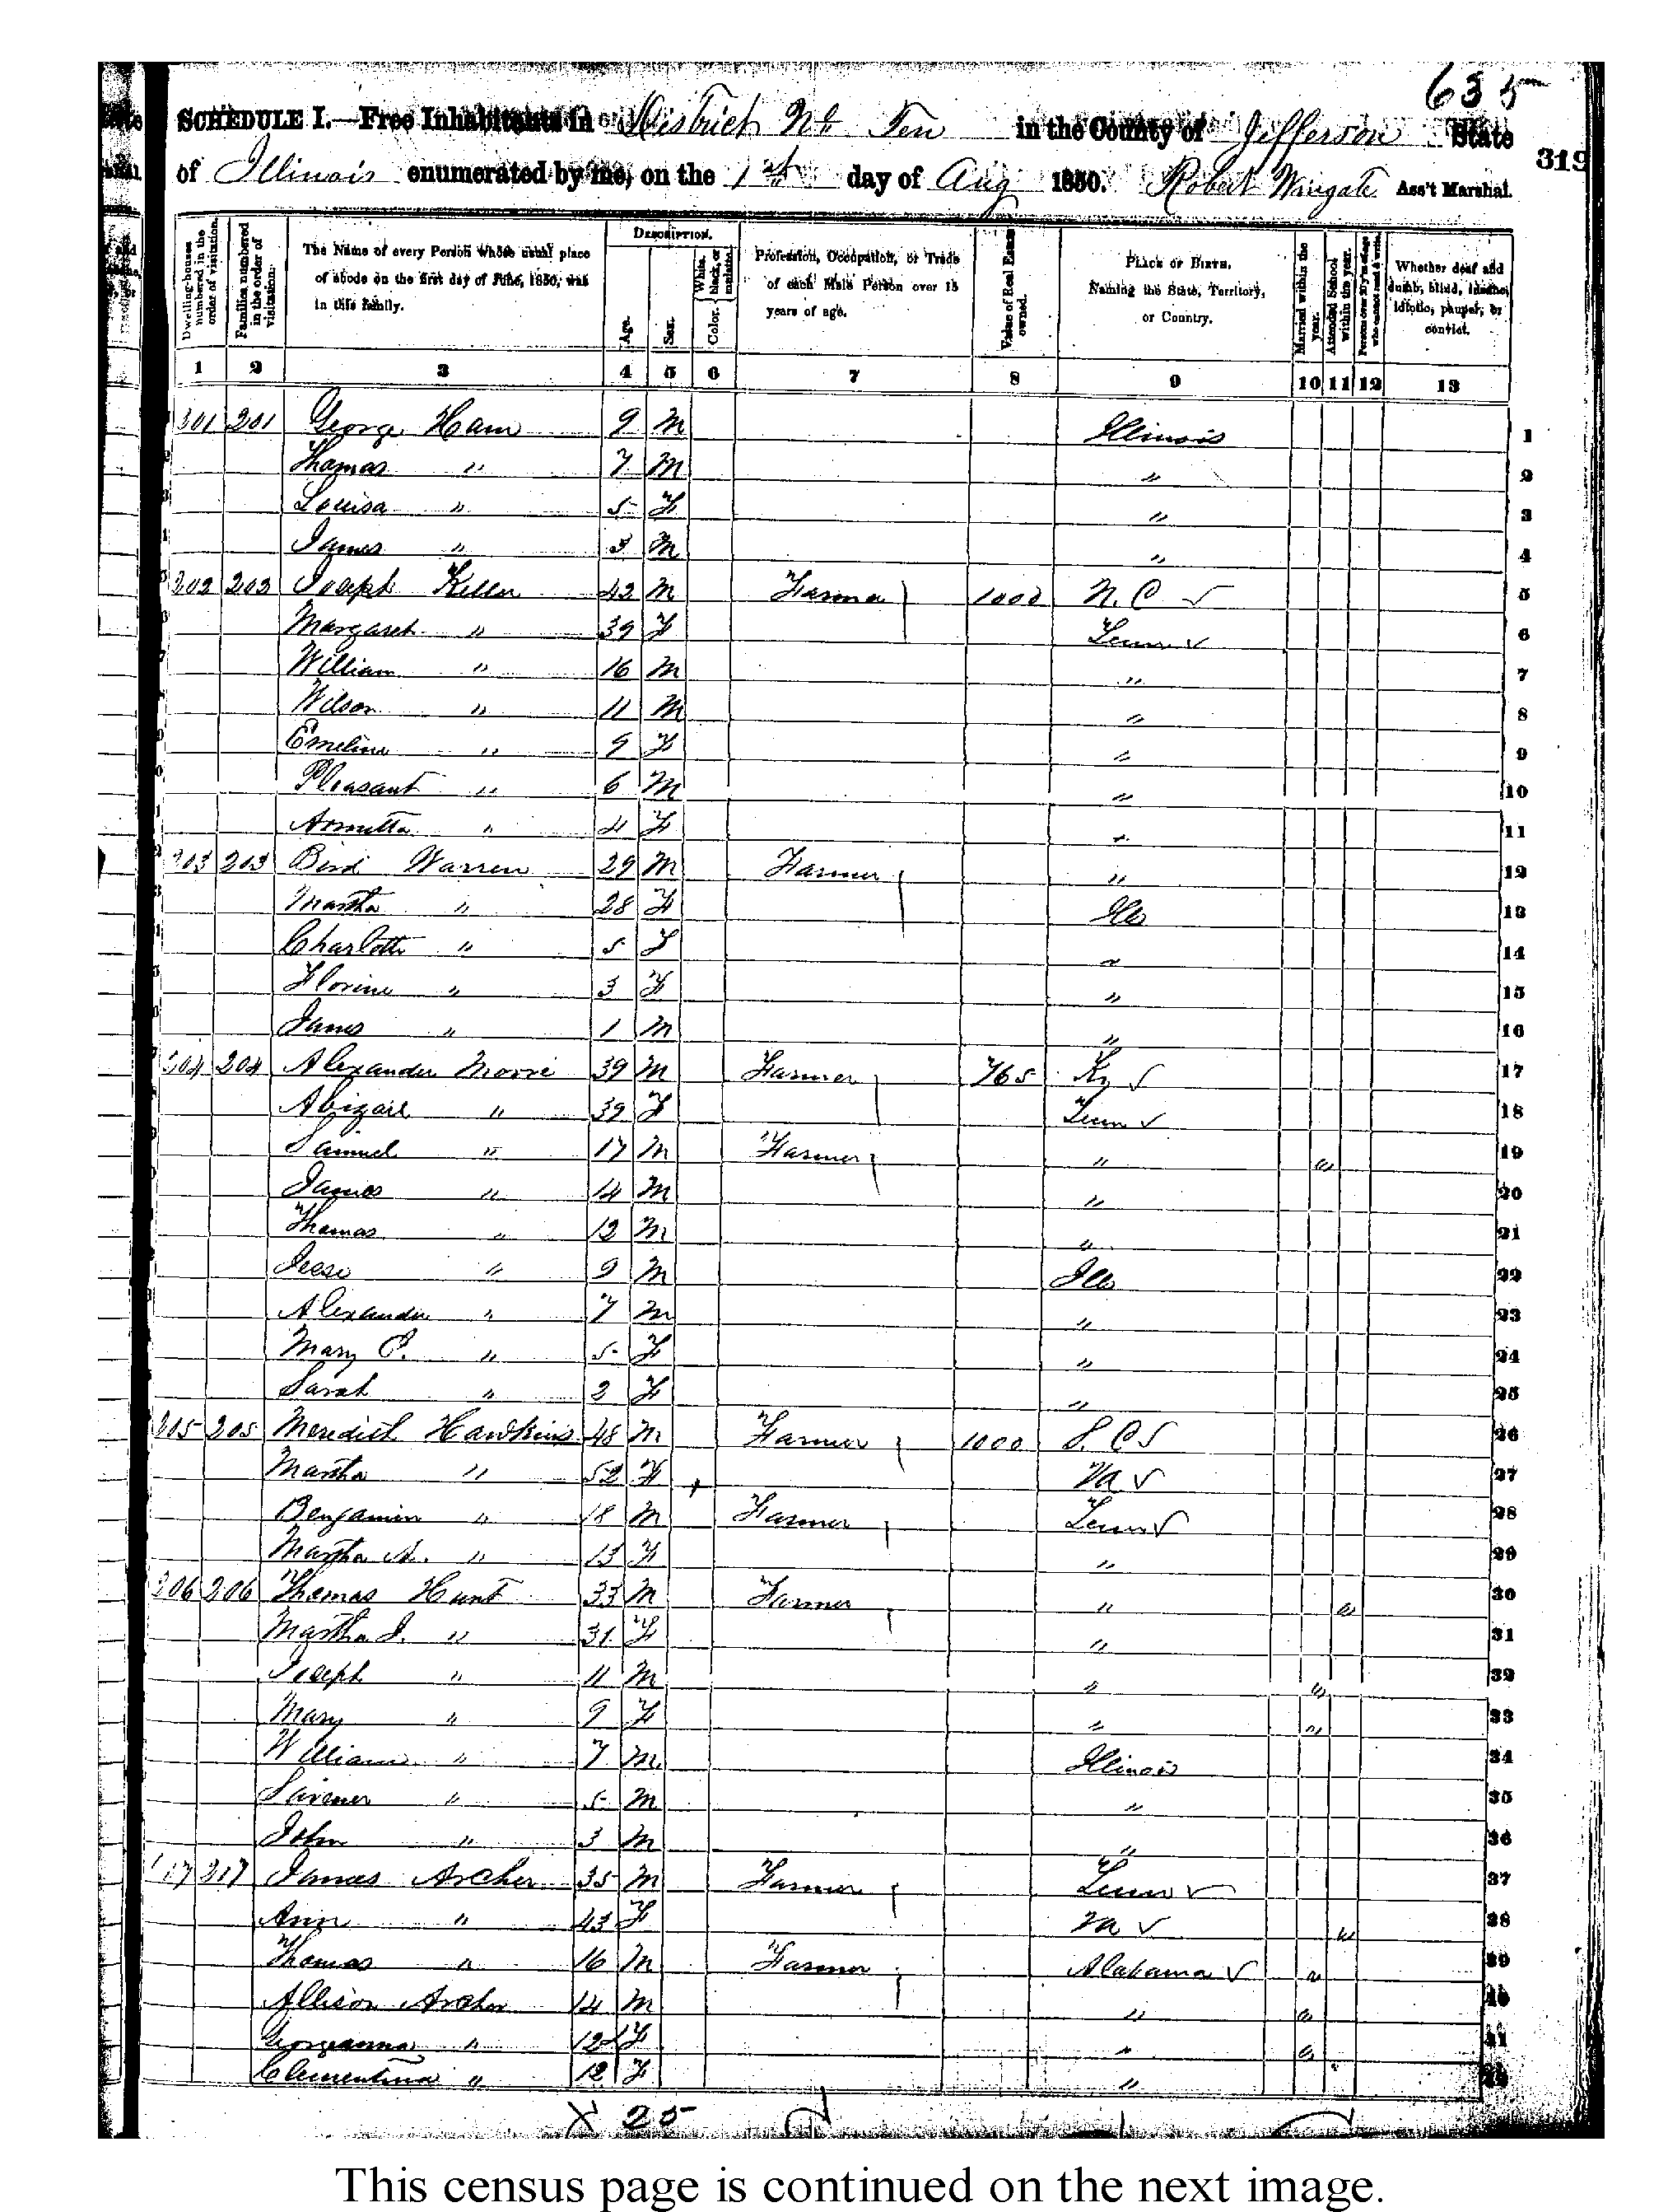 635
SCHEDULE I.—Free Inhabitants in District No Ten in the County of Jefferson State
319
of Illinois enumerated by me, on the 1st day of Aug 1850. Robert Wingate Ass't Marshal.
Dwelling-houses numbered in the order of visitation.
Families numbered in the order of visitation.
The Name of every Person whose usual place of abode on the first day of June, 1850, was in this family.
DESCRIPTION.
Age.
Sex.
Color. White, black, or mulatto.
Profession, Occupation, or Trade of each Male Person over 15 years of age.
Value of Real Estate owned.
PLACE OF BIRTH. Naming the State, Territory, or Country.
Married within the year.
Attended School within the year.
Persons over 20 y'rs of age who cannot read & write.
Whether deaf and dumb, blind, insane, idiotic, pauper, or convict.
1 2 3 4 5 6 7 8 9 10 11 12 13
201 201 George Ham 9 M Illinois 1
Thomas " 7 M " 2
Louisa " 5 F " 3
James " 3 M " 4
202 202 Joseph Keller 42 M Farmer 1000 N. C ✓ 5
Margaret " 39 F Tenn ✓ 6
William " 16 M " 7
Wilson " 11 M " 8
Emeline " 9 F " 9
Pleasant " 6 M " 10
" 4 F " 11
203 203 Bird Warren 29 M Farmer " 12
Martha " 28 F Ills 13
Charlotte " 5 F " 14
Florine " 3 F " 15
James " 1 M " 16
204 204 Alexander Moore 39 M Farmer 765 Ky ✓ 17
Abigail " 39 F Tenn ✓ 18
Samuel " 17 M Farmer " " 19
James " 14 M " 20
Thomas " 12 M " 21
Jesse " 9 M Ills 22
Alexander " 7 M " 23
Mary C. " 5 F " 24
Sarah " 2 F " 25
205 205 Meredith Hawkins 48 M Farmer 1000 S. C ✓ 26
Martha " 52 F Va ✓ 27
Benjamin " 18 M Farmer Tenn ✓ 28
Martha A. " 13 F " 29
206 206 Thomas Hunt 33 M Farmer " " 30
Martha J. " 31 F " 31
Joseph " 11 M " " 32
Mary " 9 F " " 33
William " 7 M Illinois 34
" 5 M " 35
John " 3 M " 36
217 217 James Archer 35 M Farmer Tenn ✓ 37
Ann " 43 F Va ✓ " 38
Thomas " 16 M Farmer Alabama ✓ " 39
Allison Archer 14 M " " 40
Georgeanna " 12 F " " 41
Clementina " 12 F " 42
25
This census page is continued on the next image.